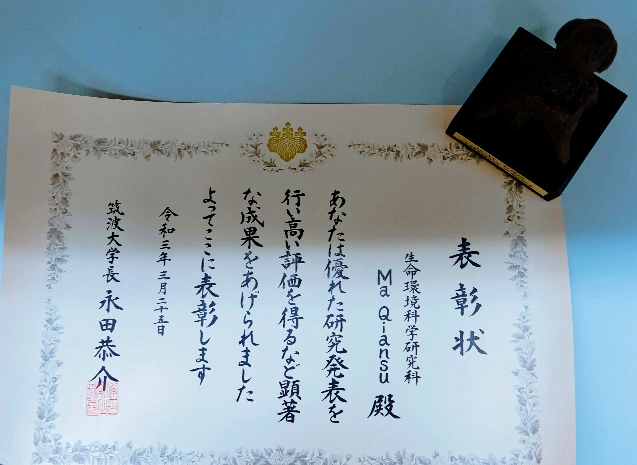 表彰状
生命環境科学研究科
Ma Qiansu 殿
あなたは優れた研究発表を
行い高い評価を得るなど顕著
な成果をあげられました
よってここに表彰します
令和三年三月二十五日
筑波大学長 永田恭介